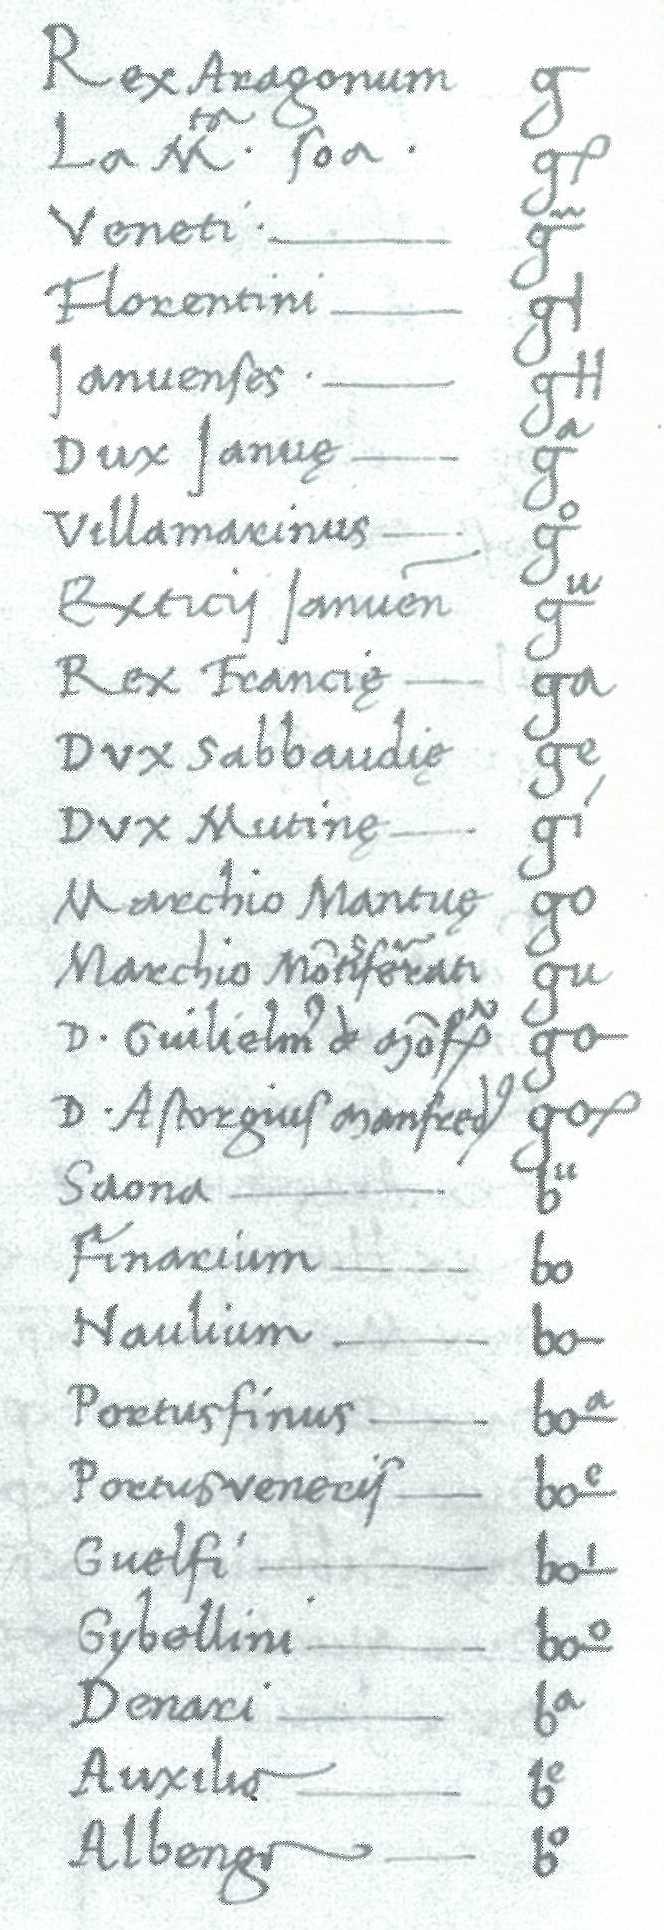 Rex Aragonum g
La Mta. soa.
Veneti. g
Florentini g
Januenses. g
Dux Januę ga
Villamarinus go
Exticij Januen gu
Rex Francię ga
Dvx Sabbaudię ge
Dvx Mutinę gi
Marchio Mantuę go
Marchio gu
D. Guilielm9 de go
D. Astorgius Manfred9 go
Saona bu
Finarium bo
Naulium bo-
Portusfinus bo-a
Portusveneris bo-e
Guelfi bo-i
Gybellini bo-o
Denari ba
Auxilio be
Albeng bo